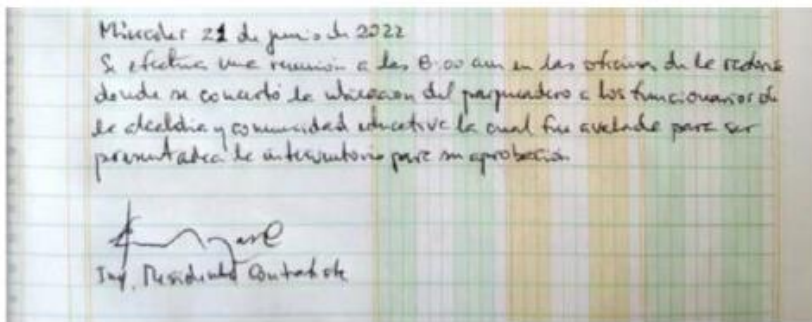 Miercoles 21 de junio de 2022
Se efectua una reunion a las 8:00 am en las oficinas de la rectoria
donde se concertó la ubicacion del parqueadero a los funcionarios de
la alcaldia y comunidad educativa la cual fue avalada para ser
presentada a la interventoria para su aprobación
Ing. Residente Contratista